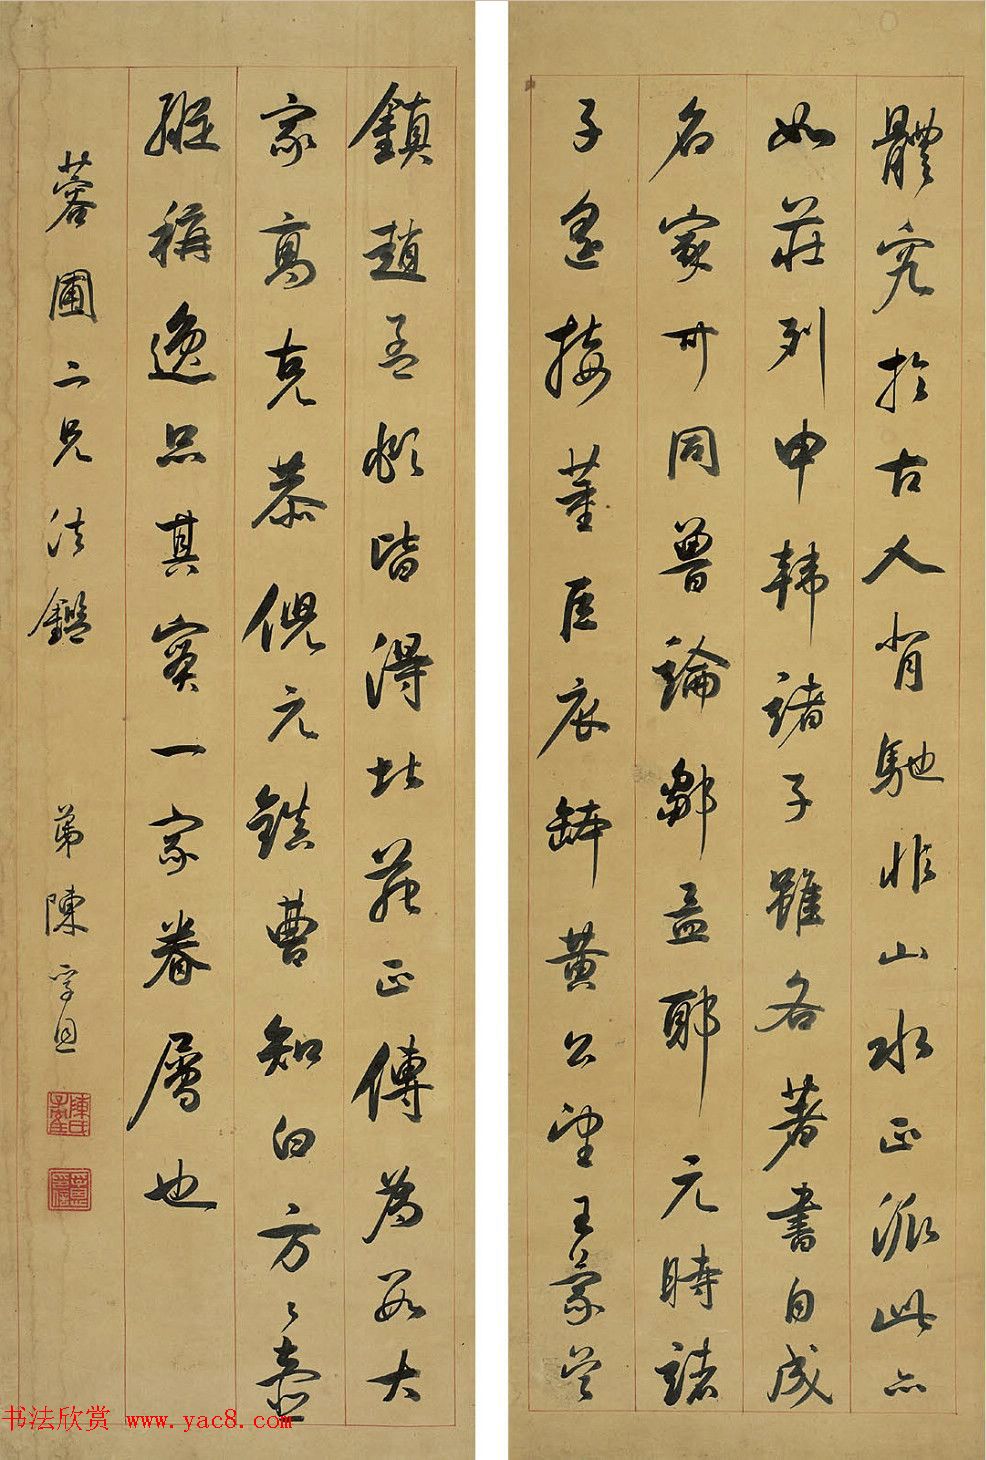 體究於古人背馳非山水正派此亦
如莊列申韓諸子雖各著書自成
名家可同魯論鄒孟耶元時諸
子遙接董巨衣鉢黃公望王蒙吳
鎮趙孟頫皆得北苑正傳為五大
家高克恭倪元鎮曹知白方方壺
雖稱逸品其實一家眷屬也
蓉圃二兄法鑑
弟陳孚恩
书法欣赏 www.yac8.com